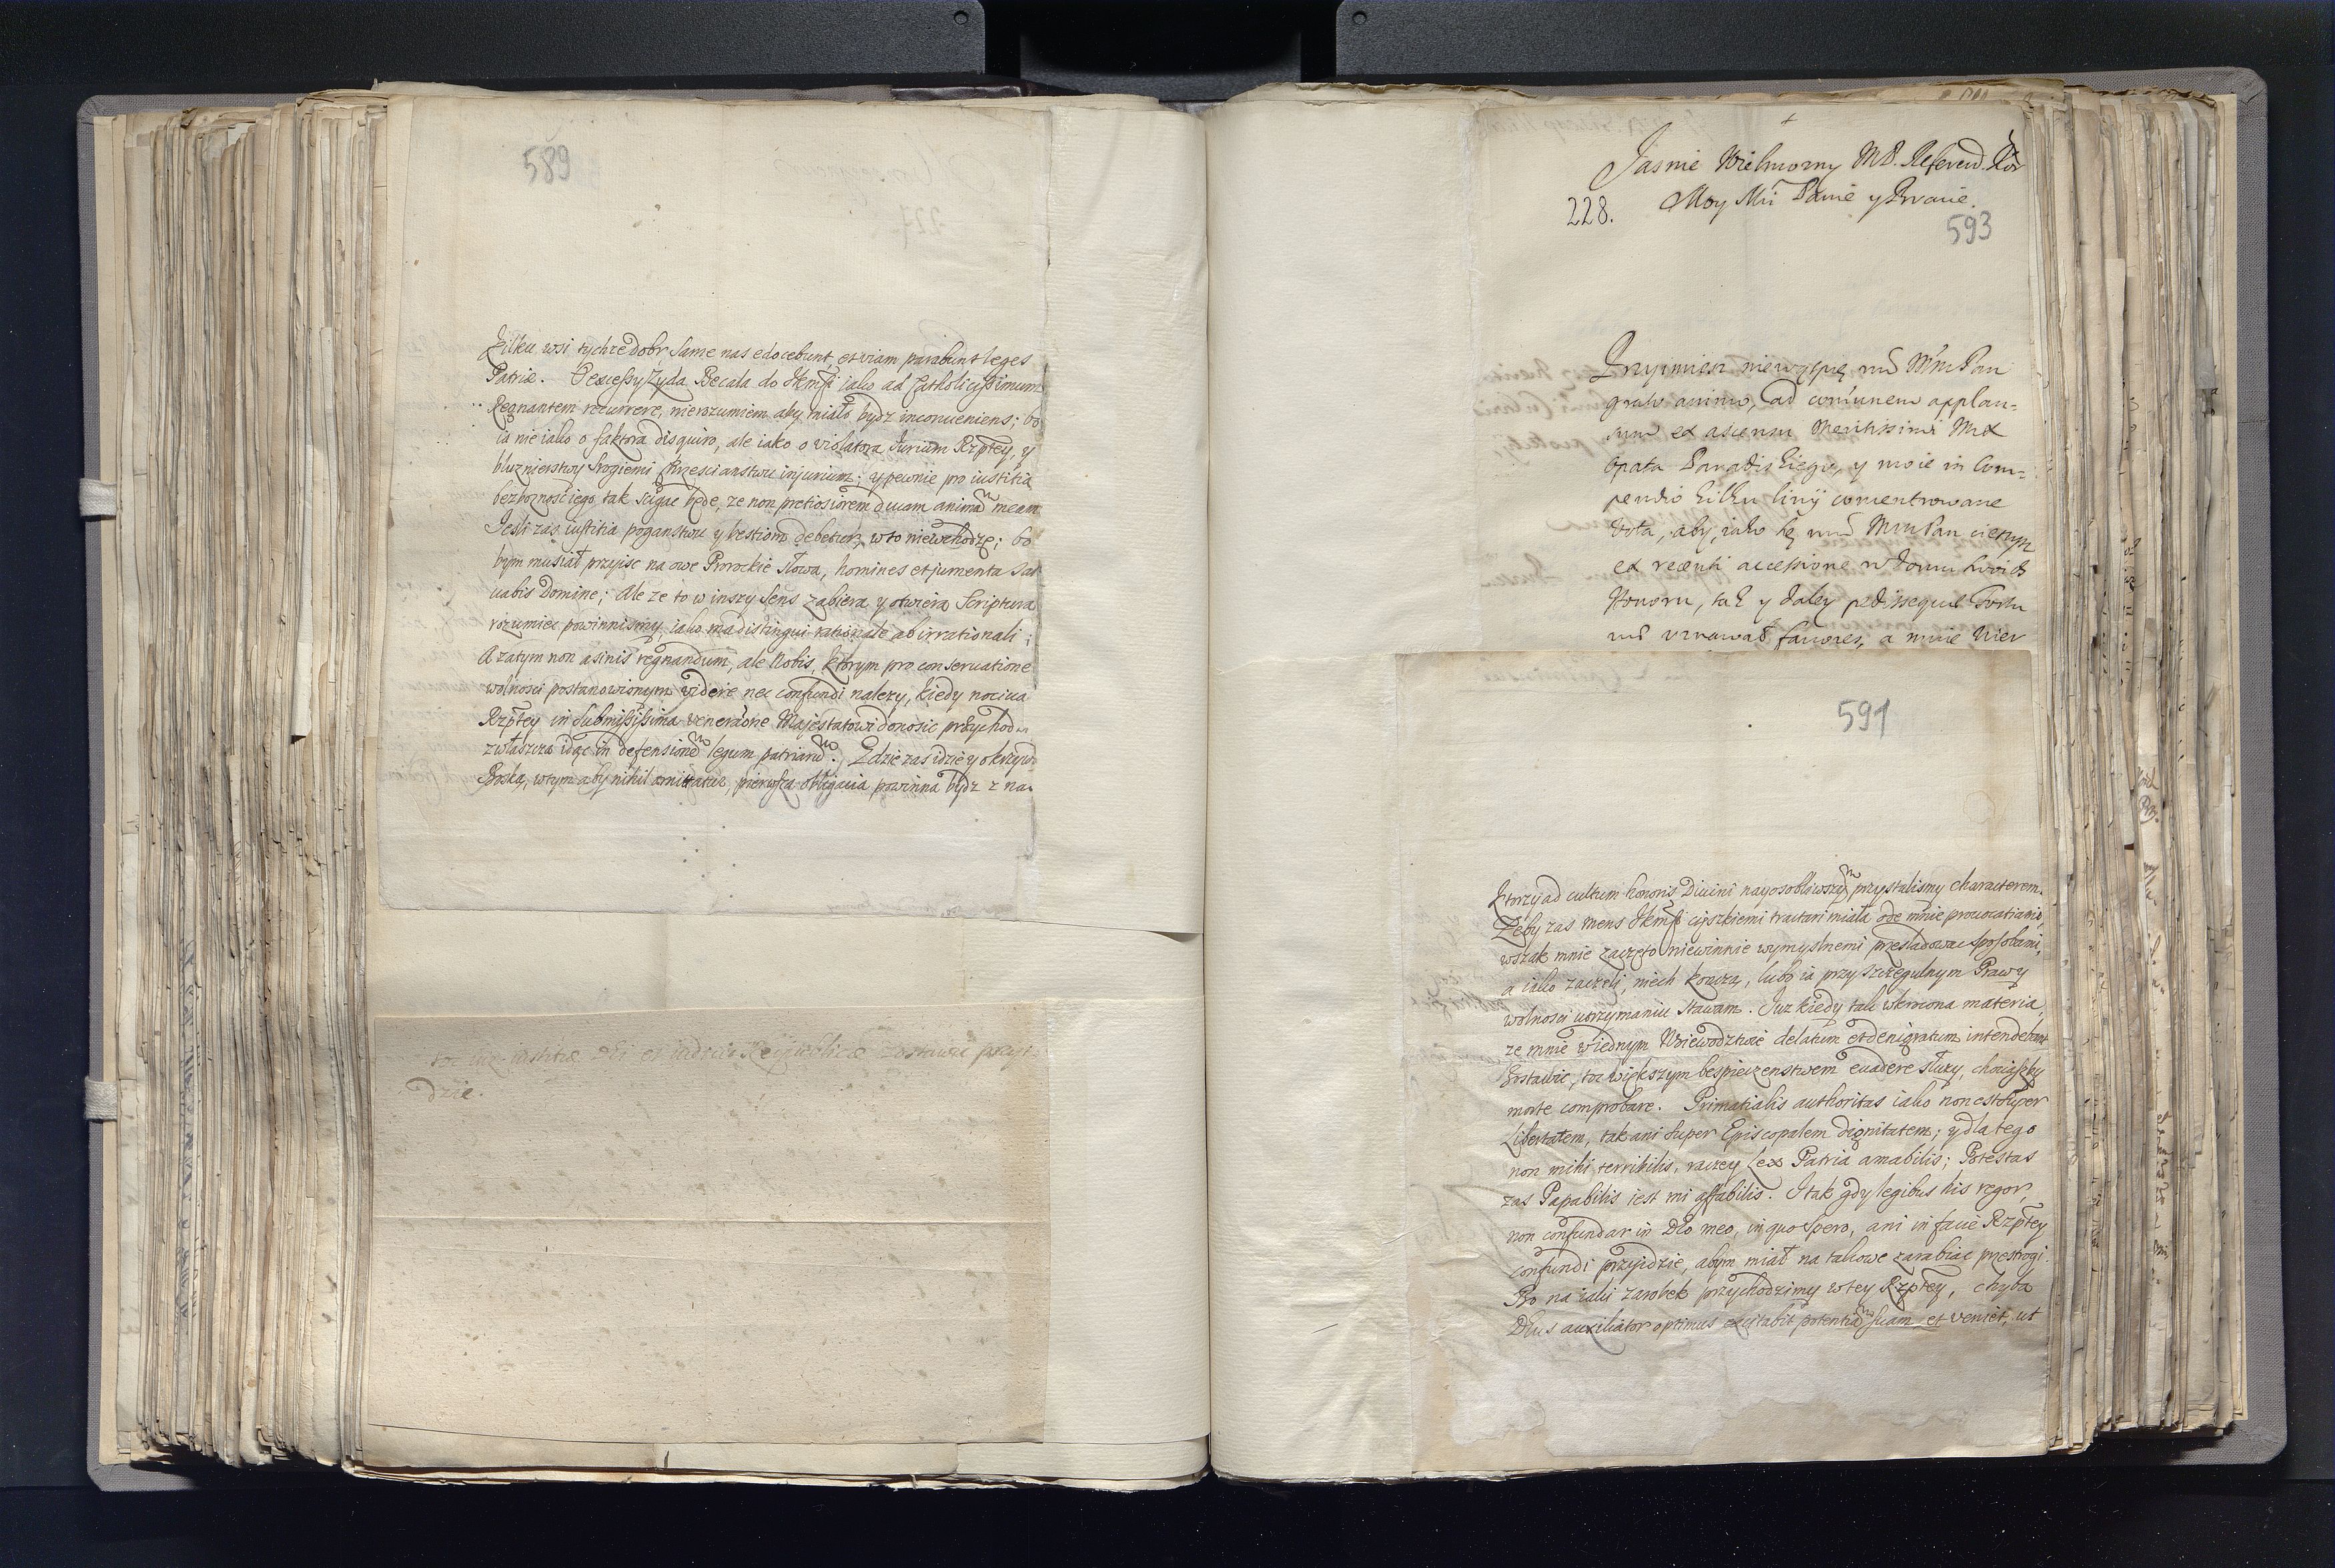 589
Kilku wsi tychze dobr same nas edocebunt, et viam parabunt leges
Patriæ. O excessy Zyda Becala do JKmsci iako ad Catholicissimum
Regnantem recurrere, nierozumiem aby miało bydz inconueniens; bo
ia nie iako o faktora disquiro, ale iako o violatora Jurium Rzptey, y
bluznierstwy srogiemi Chrzescianstwu injurium; y pewnie pro iustitia
bezboznosc iego tak scigac będę, ze non pretiosiorem quam animam meam
Jesli zas iustitia poganstwu y bestiom debetur, w to niewchodzę; bo
bym musiał przyjsc na owe Prorockie słowa, homines et jumenta sal
uabis Domine; Ale ze to w inszy sens zabiera y otwiera Scriptura
rozumiec powinnismy, iako ma distingui rationale ab irrationali;
A zatym non asinis regnandum, ale Nobis, ktorym pro conseruatione
wolnosci postanowionym videre nec confundi nalezy, kiedy nociua
Rzptey in submississima veneratione Majestatowi donosic przychodzi
zwłaszcza idąc in defensionem legum patriarum. Gdzie zas idzie y o krzywdę
Boską, w tym aby nihil omittatur, pierwsza obligacia powinna bydz z nas
to iuz iustitiæ Dei et iudicio Reipublicæ zostawic przyi
dzie.
Jasnie Wielmozny MP. Referend. Kor
228. Moy Mci Panie y Bracie.
593
Przyimiesz niewątpię
grato animo, ad com̃unem applau=
sum ex ascensu Meritissimi
Opata Paradiskiego, y moie in Com=
pendio kilku linij concentrowane
Vota, aby, iako się Pan cieszysz
ex recenti accessione w Domu swoich
Honoru, tak y daley
uznawał fauores, a mnie
591
Ktorzy ad cultum honoris Diuini nayosobliwszym przystalismy characterem.
Zeby zas mens JKmsci cięszkiemi tractari miała ode mnie prouocatiami,
wszak mnie zaczęto niewinnie wymyslnemi przesladowac sposobami,
a iako zaczeli, niech konczą, lubo ia przy szczegulnym Prawy
wolnosci utrzymaniu stawam. Juz kiedy tak wkrocona materia,
ze mnie w iednym Woiewodztwie delatum et denigratum intendebant
zostawic, to z większym bespieczenstwem euadere słuzy, chociaszby
morte comprobare. Primatialis authoritas iako non est super
Libertatem, tak ani super Episcopalem dignitatem; y dla tego
non mihi terribilis, raczey Lex Patria amabilis; Potestas
zas Papabilis iest mi affabilis. I tak gdy legibus his regor,
non confundar in Deo meo, in quo spero, ani in facie Rzptey
confundi przyidzie, abym miał na takowe zarabiac przestrogi.
Bo na iaki zarobek przychodzimy w tey Rzptey, chyba
Deus auxiliator optimus excitabit potentiam suam et veniet, ut